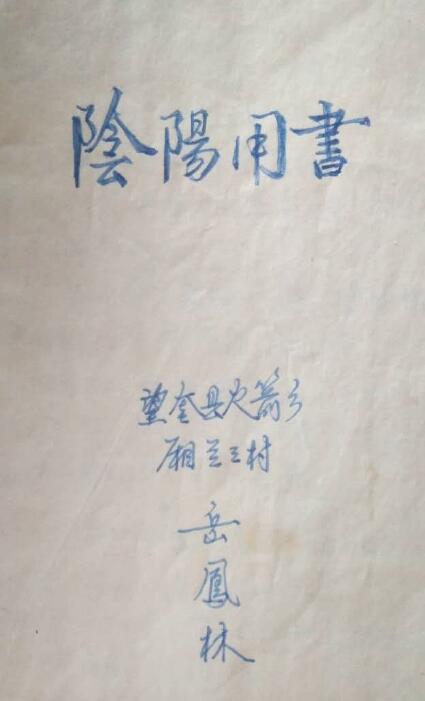 陰陽用書
望奎县火箭乡
厢兰三村
岳
鳳
林